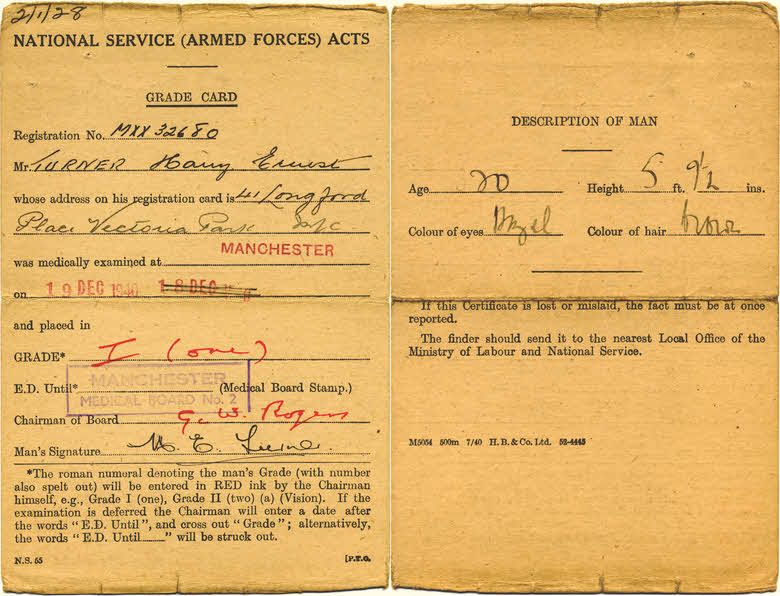 2/1/28
NATIONAL SERVICE (ARMED FORCES) ACTS
GRADE CARD
Registration No. MXX 32680
Mr. TURNER Harry Ernest
whose address on his registration card is 41 Longford
Place Victoria Park M/c
was medically examined at MANCHESTER
on 19 DEC 1940 18 DEC
and placed in
GRADE* I (one)
MANCHESTER
E.D. Until* (Medical Board Stamp.)
MEDICAL BOARD No. 2
Chairman of Board G. W. Rogers
Man's Signature H. E. Turner
*The roman numeral denoting the man's Grade (with number
also spelt out) will be entered in RED ink by the Chairman
himself, e.g., Grade I (one), Grade II (two) (a) (Vision). If the
examination is deferred the Chairman will enter a date after
the words "E.D. Until", and cross out "Grade"; alternatively,
the words "E.D. Until____" will be struck out.
N.S. 55 [P.T.O.
DESCRIPTION OF MAN
Age 20 Height 5 ft. 9½ ins.
Colour of eyes Hazel Colour of hair brown
If this Certificate is lost or mislaid, the fact must be at once
reported.
The finder should send it to the nearest Local Office of the
Ministry of Labour and National Service.
M5054 500m 7/40 H. B. & Co. Ltd. 52-4445